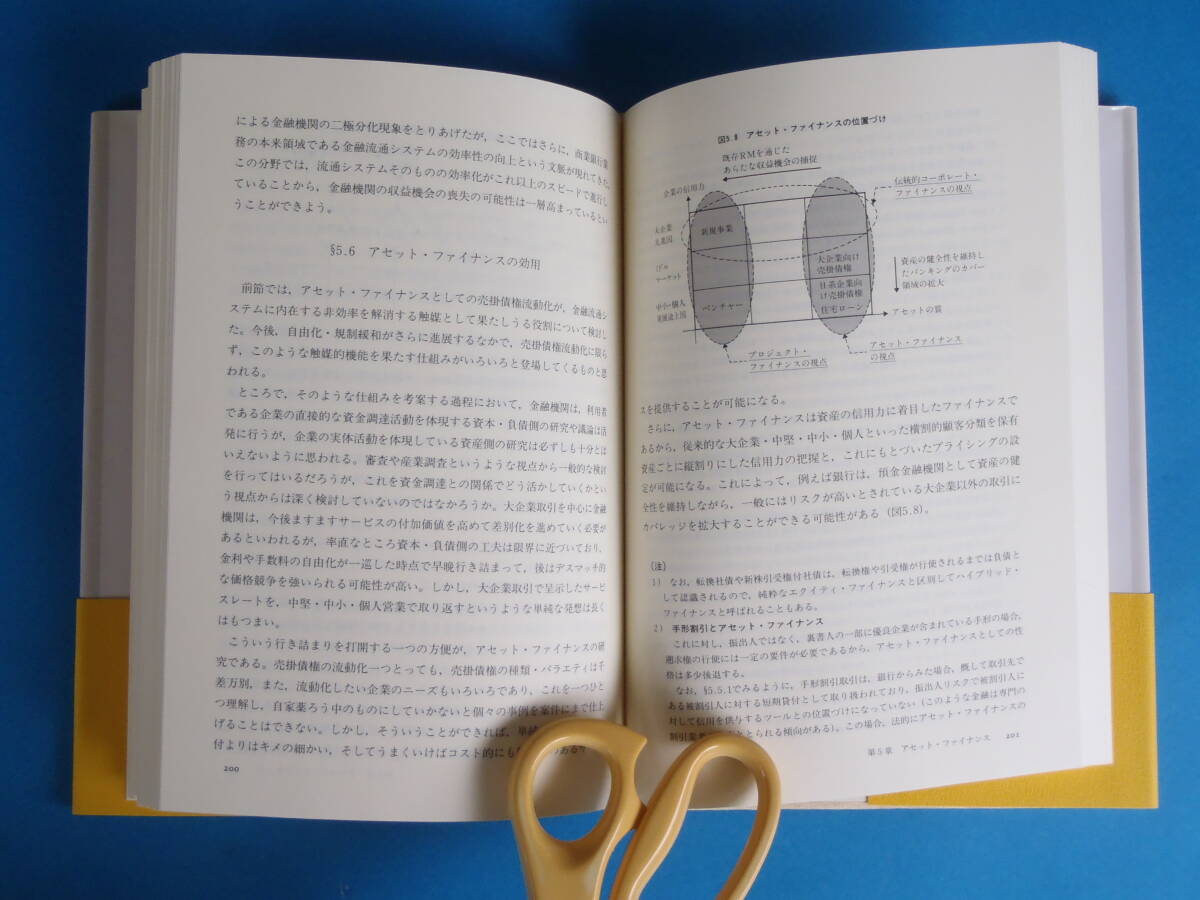 による金融機関の二極分化現象をとりあげたが，ここではさらに，商業銀行業
務の本来領域である金融流通システムの効率性の向上という文脈が現れてきた。
この分野では，流通システムそのものの効率化がこれ以上のスピードで進行し
ていることから，金融機関の収益機会の喪失の可能性は一層高まっているとい
うことができよう。
§5.6 アセット・ファイナンスの効用
前節では，アセット・ファイナンスとしての売掛債権流動化が，金融流通シ
ステムに内在する非効率を解消する触媒として果たしうる役割について検討し
た。今後，自由化・規制緩和がさらに進展するなかで，売掛債権流動化に限ら
ず，このような触媒的機能を果たす仕組みがいろいろと登場してくるものと思
われる。
ところで，そのような仕組みを考案する過程において，金融機関は，利用者
である企業の直接的な資金調達活動を体現する資本・負債側の研究や議論は活
発に行うが，企業の実体活動を体現している資産側の研究は必ずしも十分とは
いえないように思われる。審査や産業調査というような視点から一般的な検討
を行ってはいるだろうが，これを資金調達との関係でどう活かしていくかとい
う視点からは深く検討していないのではなかろうか。大企業取引を中心に金融
機関は，今後ますますサービスの付加価値を高めて差別化を進めていく必要が
あるといわれるが，率直なところ資本・負債側の工夫は限界に近づいており，
金利や手数料の自由化が一巡した時点で早晩行き詰まって，後はデスマッチ的
な価格競争を強いられる可能性が高い。しかし，大企業取引で呈示したサービ
スレートを，中堅・中小・個人営業で取り返すというような単純な発想は長く
はもつまい。
こういう行き詰まりを打開する一つの方便が，アセット・ファイナンスの研
究である。売掛債権の流動化一つとっても，売掛債権の種類・バラエティは千
差万別，また，流動化したい企業のニーズもいろいろであり，これを一つひと
つ理解し，自家薬ろう中のものにしていかないと個々の事例を案件にまで仕上
げることはできない。しかし，そういうことができれば，単純
付よりはキメの細かい，そしてうまくいけばコスト的にも のある
200
図5.8 アセット・ファイナンスの位置づけ
既存RMを通じた
あらたな収益機会の捕捉
企業の信用力
伝統的コーポレート・
ファイナンスの視点
大企業
先進国
新規事業
ミドル
マーケット
大企業向け
売掛債権
資産の健全性を維持し
たバンキングのカバー
領域の拡大
中小・個人
発展途上国
ベンチャー
日系企業向
け売掛債権
住宅ローン
アセットの質
プロジェクト・
ファイナンスの視点
アセット・ファイナンス
の視点
スを提供することが可能になる。
さらに，アセット・ファイナンスは資産の信用力に着目したファイナンスで
あるから，従来的な大企業・中堅・中小・個人といった横割的顧客分類を保有
資産ごとに縦割りにした信用力の把握と，これにもとづいたプライシングの設
定が可能になる。これによって，例えば銀行は，預金金融機関として資産の健
全性を維持しながら，一般にはリスクが高いとされている大企業以外の取引に
カバレッジを拡大することができる可能性がある（図5.8）。
（注）
1） なお，転換社債や新株引受権付社債は，転換権や引受権が行使されるまでは負債と
して認識されるので，純粋なエクイティ・ファイナンスと区別してハイブリッド・
ファイナンスと呼ばれることもある。
2） 手形割引とアセット・ファイナンス
これに対し，振出人ではなく，裏書人の一部に優良企業が含まれている手形の場合，
遡求権の行使には一定の要件が必要であるから，アセット・ファイナンスとしての性
格は多少後退する。
なお，§5.5.1でみるように，手形割引取引は，銀行からみた場合，概して取引先で
ある被割引人に対する短期貸付として取り扱われており，振出人リスクで被割引人に
対して信用を供与するツールとの位置づけになっていない（このような金融は専門の
割引業者 ととられる傾向がある）。この場合，法的にアセット・ファイナンスの
第5章 アセット・ファイナンス 201